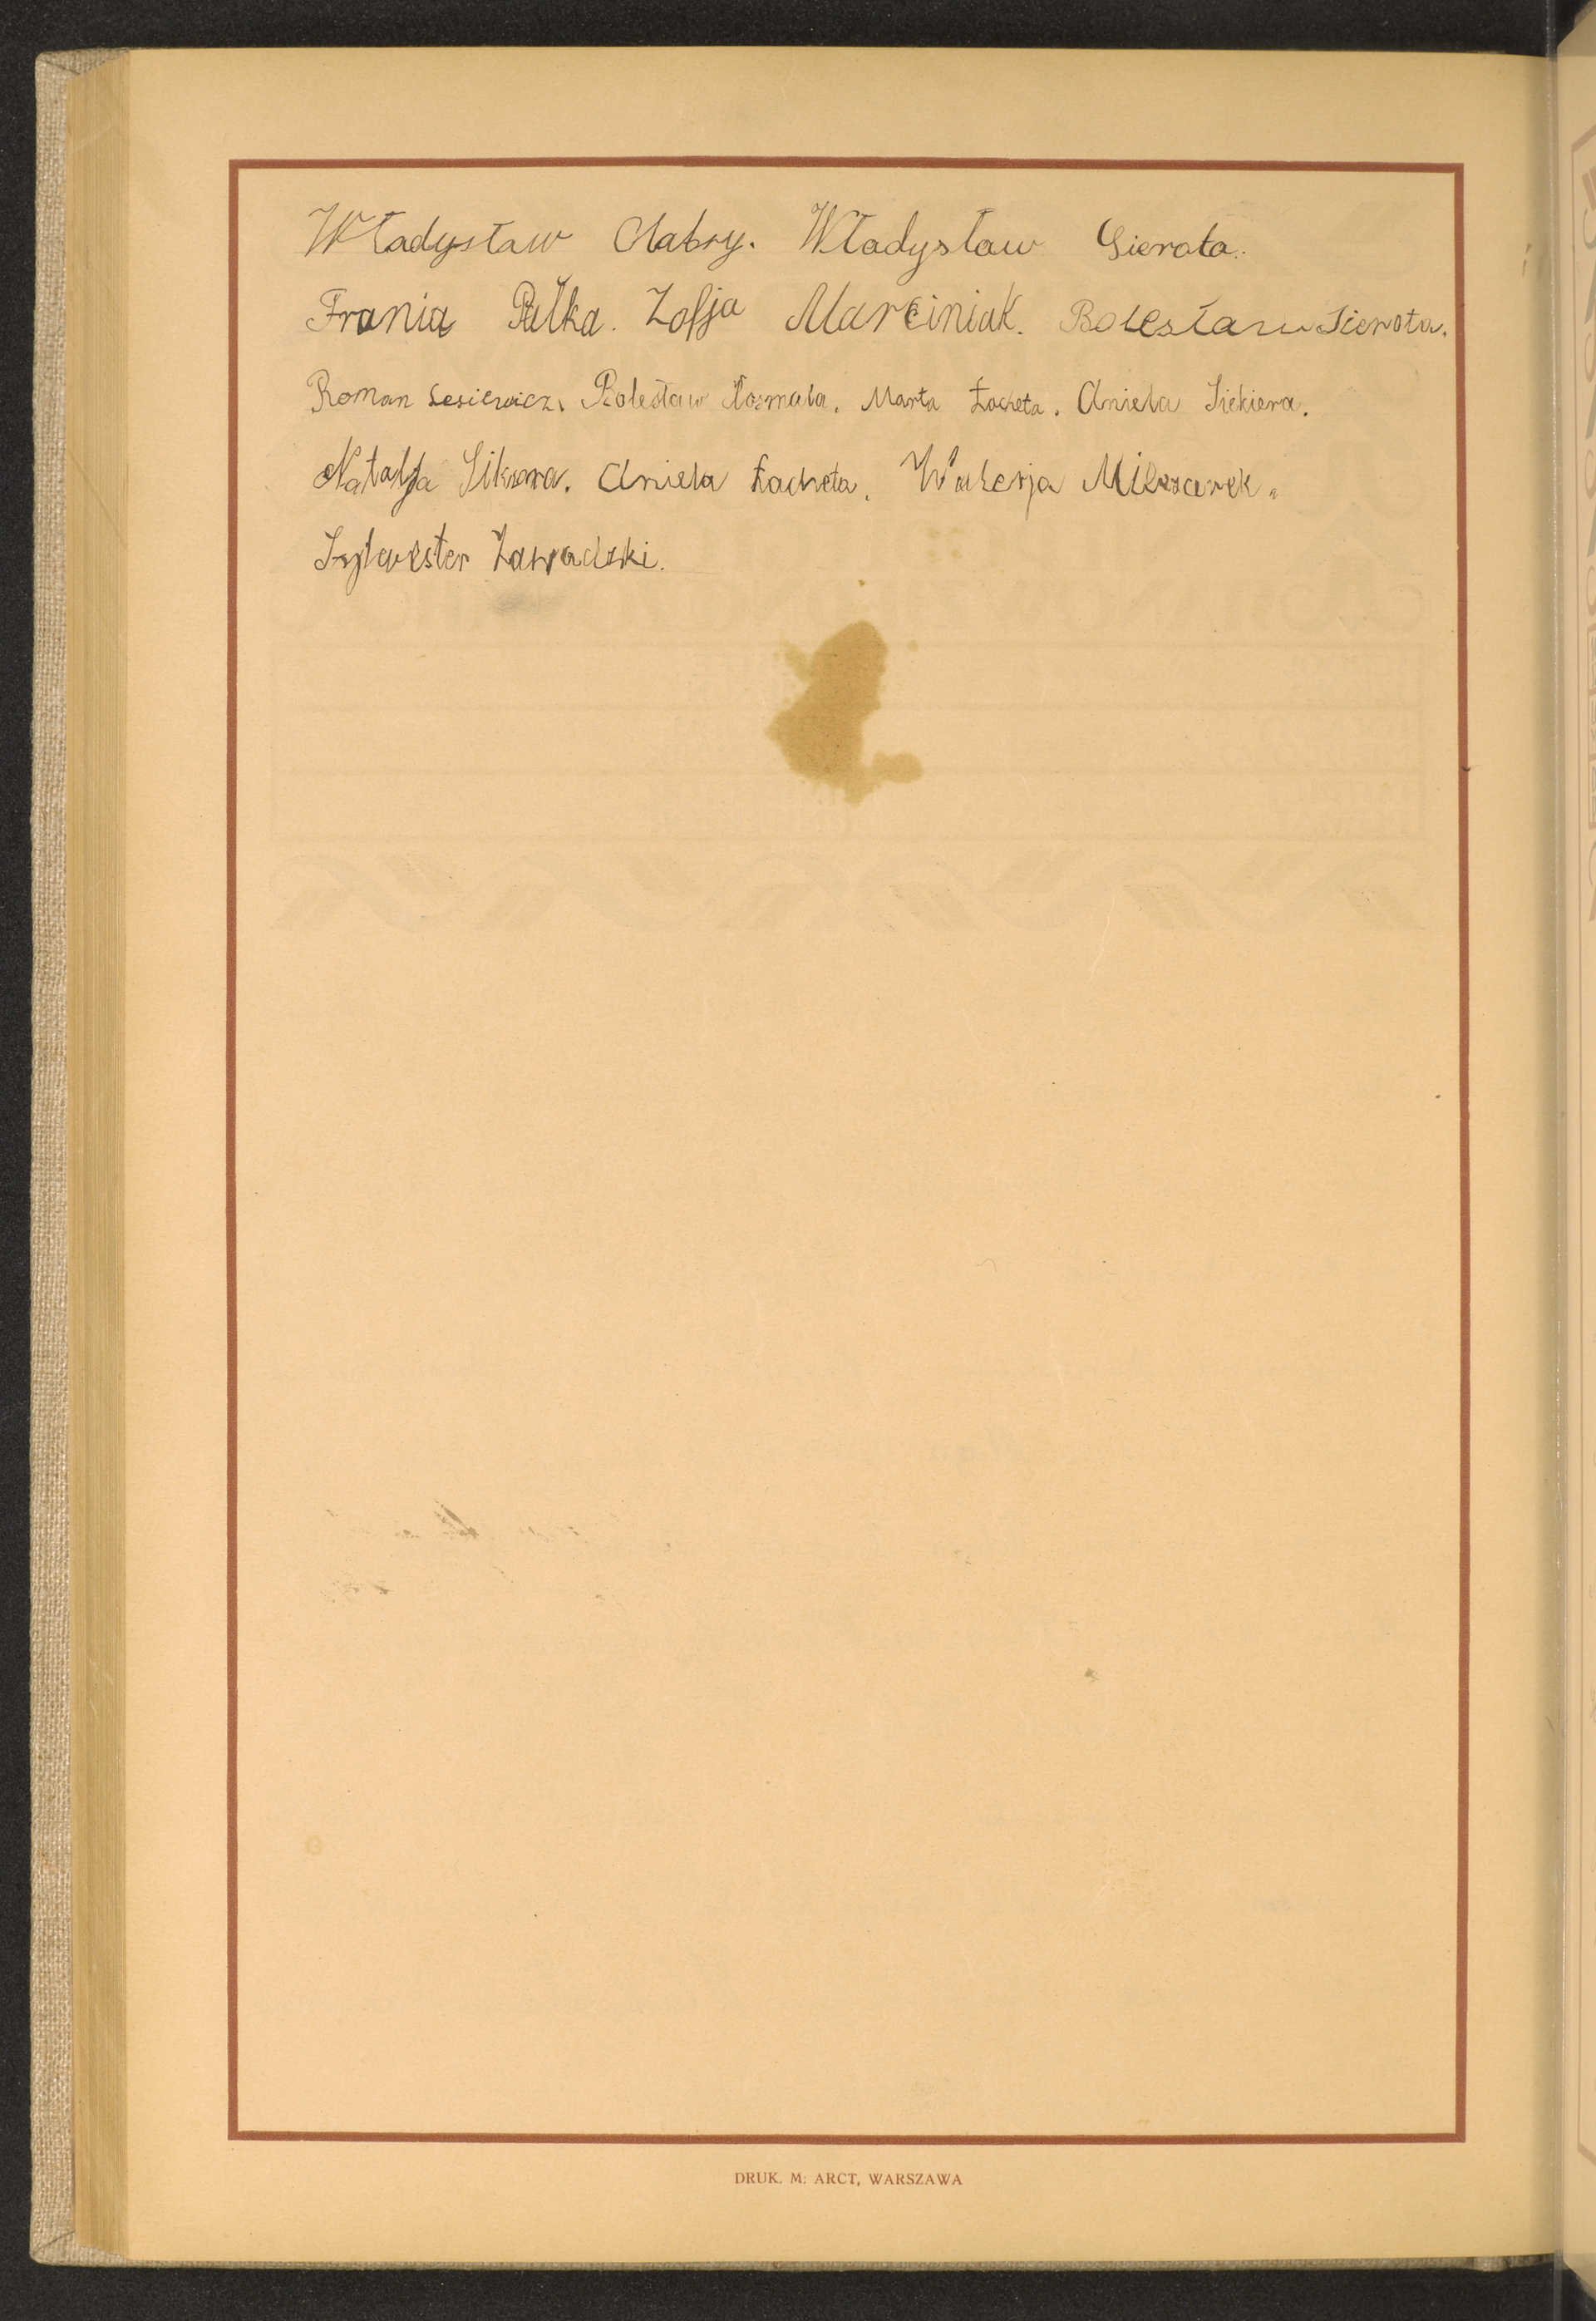 Władysław Chabry. Władysław Sierota.
Frania Pałka. Zofja Marciniak. Bolesław Sierota.
Roman Lesiewicz. Bolesław Marta Łacheta. Aniela Siekiera.
Natalja Sikora. Aniela Łacheta. Walerja Milczarek.
Sylwester Zawadzki.
DRUK. M. ARCT, WARSZAWA